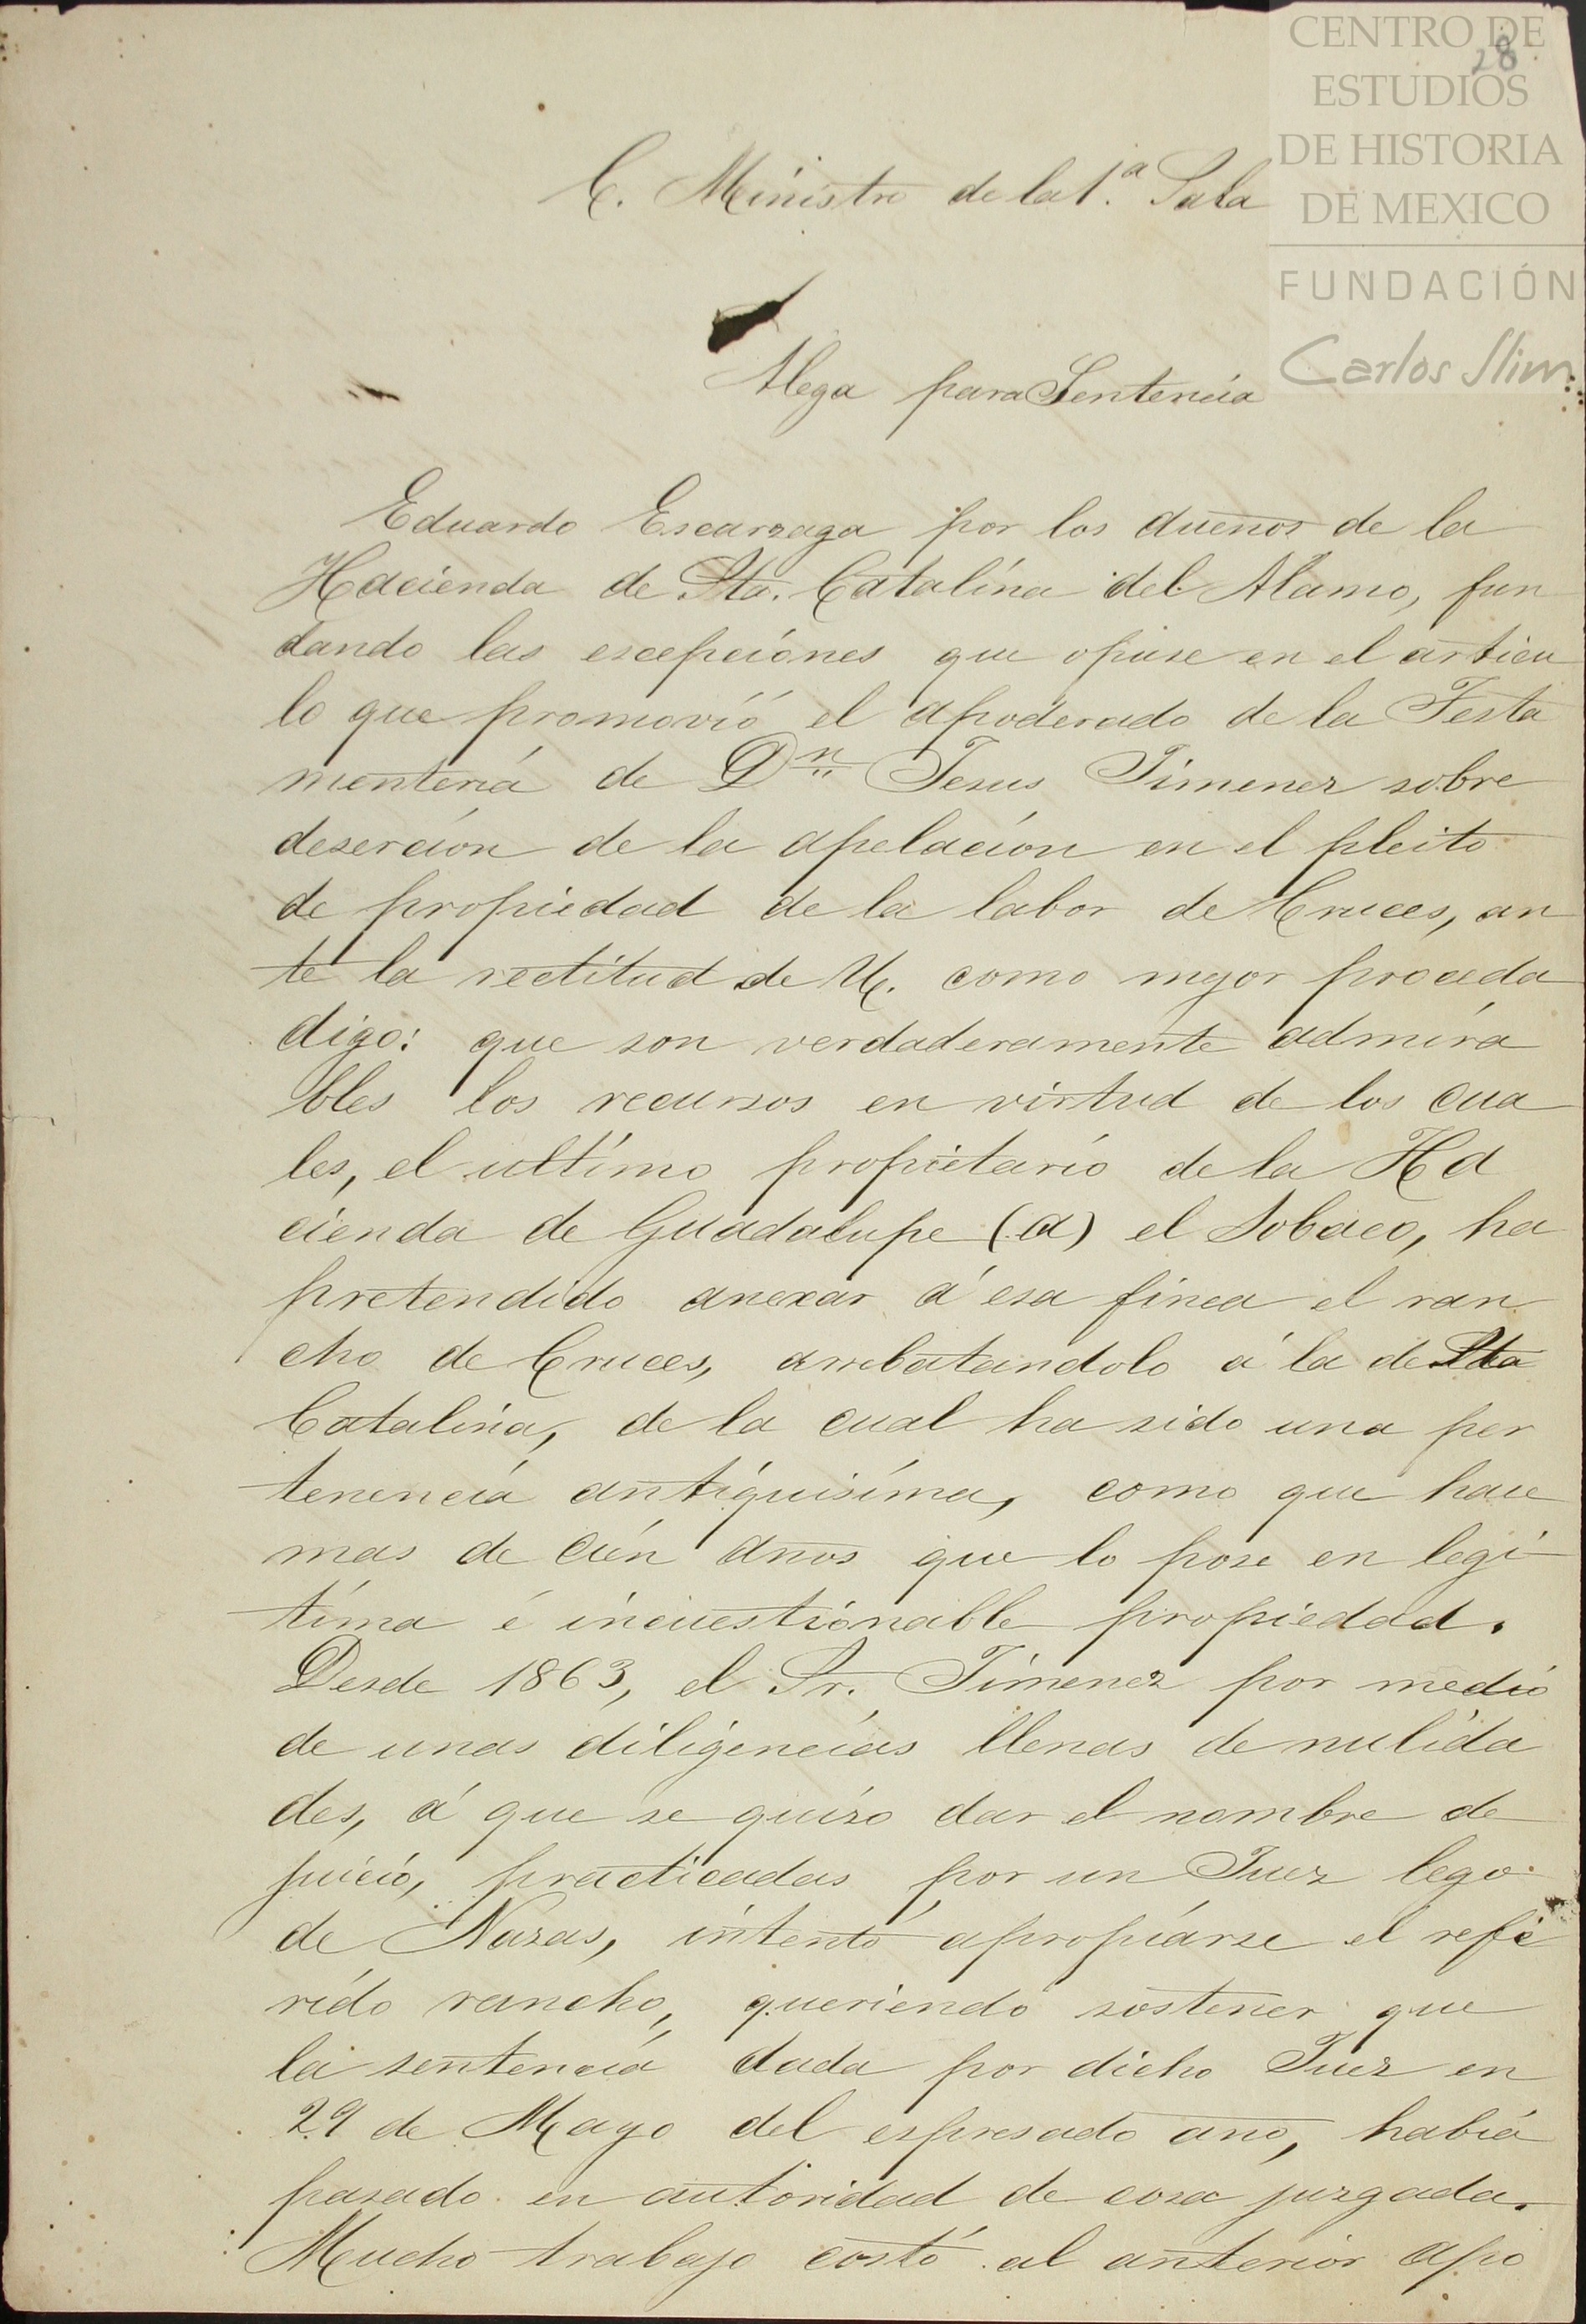 CENTRO DE
ESTUDIOS
DE HISTORIA
DE MEXICO
FUNDACIÓN
Carlos Slim
28
C. Ministro de la 1.ª Sala
Alega para Sentencia
Eduardo Escarzaga por los dueños de la
Hacienda de Sta. Catalina del Alamo, fun
dando las escepciones que opuse en el articu
lo que promovió el apoderado de la Testa
mentería de Dn. Jesus Jimenez sobre
deserción de la apelación en el pleito
de propiedad de la labor de Cruces, an
te la rectitud de U. como mejor proceda
digo: que son verdaderamente admira
bles los recursos en virtud de los cua
les, el ultimo propietario de la Ha
cienda de Guadalupe (a) el Sobaco, ha
pretendido anexar á esa finca el ran
cho de Cruces, arrebatandolo á la de Sta
Catalina, de la cual ha sido una per
tenencia antiquisima, como que hace
mas de cien años que lo pose en legi
tima é incuestionable propiedad.
Desde 1863, el Sr. Jimenez por medio
de unas diligencias llenas de nulida
des, á que se quiso dar el nombre de
juicio, practicadas por un Juez lego
de Nazas, intentó apropiarse el refe
rido rancho, queriendo sostener que
la sentencia dada por dicho Juez en
29 de Mayo del espresado año, había
pasado en autoridad de cosa juzgada.
Mucho trabajo costó al anterior apo